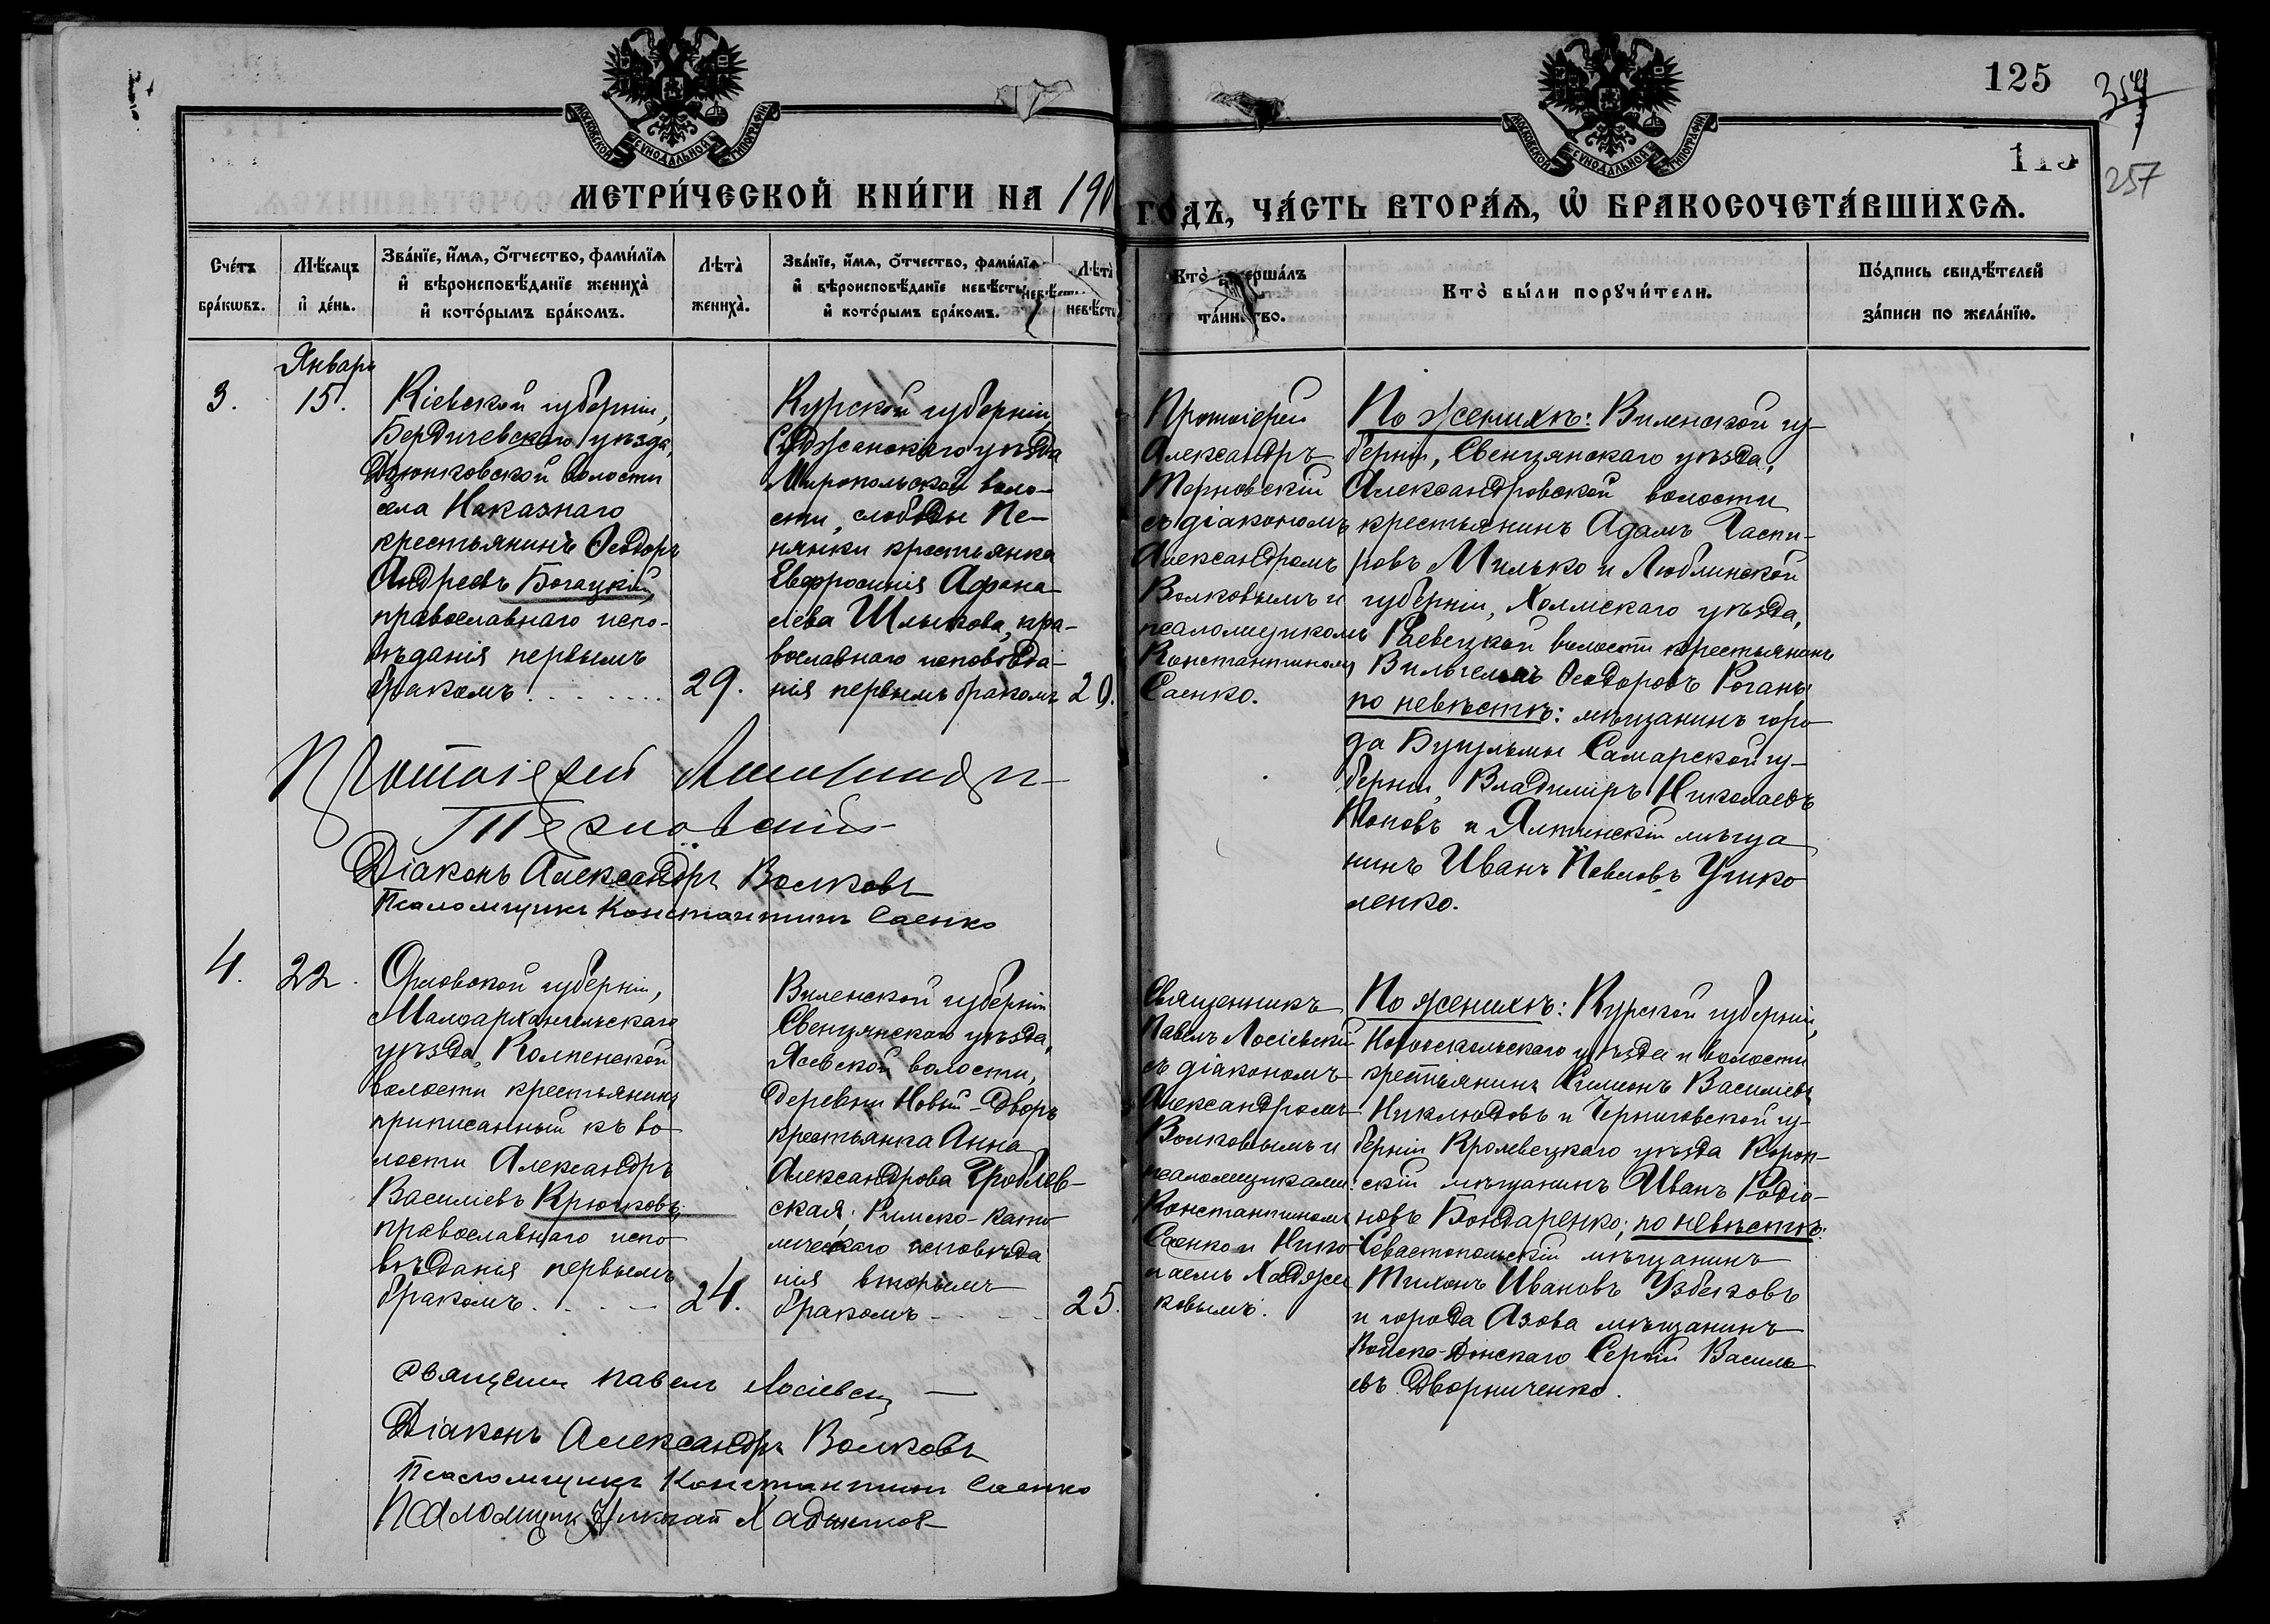 125
354
115
257
МОСКОВСКОЙ СѴНОДАЛЬНОЙ ТИПОГРАФІИ
МОСКОВСКОЙ СѴНОДАЛЬНОЙ ТИПОГРАФІИ
МЕТРИ́ЧЕСКОЙ КНИ́ГИ НА 190
ГОДЪ, ЧА́СТЬ ВТОРА́Ѧ, Ѽ БРАКОСОЧЕТА́ВШИХСѦ.
Сче́тъ
бра́кѡвъ.
Мѣ́сѧцъ
и҆ де́нь.
Зва́нїе, и҆́мѧ, ѻ҆́тчество, фами́лїѧ
и҆ вѣроисповѣ́данїе жениха̀
и҆ кото́рымъ бра́комъ.
Лѣта̀
жениха̀.
Зва́нїе, и҆́мѧ, ѻ҆́тчество, фами́лїѧ
и҆ вѣроисповѣ́данїе невѣ́сты
и҆ кото́рымъ бра́комъ.
Лѣта̀
невѣ́сты
Кто̀
та́инство.
Кто̀ бы́ли порꙋчи́тели.
По́дпись свидѣ́телей
за́писи по жела́нїю.
Январь
3.
15.
Кіевской губерніи,
Бердичевскаго уѣзда,
Дзюнковской волости
села Наказнаго
крестьянинъ Ѳеодоръ
Андреевъ Богацкій,
православнаго испо-
вѣданія первымъ
бракомъ
29.
Курской губерніи,
Суджанскаго уѣзда
Миропольской воло-
сти, слободы Пе-
нянки крестьянка
Евфросинія Афана-
сіева Шлыкова, пра-
вославнаго исповѣда-
нія первымъ бракомъ
20.
Протоіерей
Александръ
Терновскій
съ діакономъ
Александромъ
Волковымъ и
псаломщикомъ
Константиномъ
Саенко.
По женихѣ: Виленской гу-
берніи, Свенцянскаго уѣзда,
Александровской волости
крестьянинъ Адамъ Гаспи-
ровъ Милько и Люблинской
губерніи, Холмскаго уѣзда,
Раевецкой волости крестьянинъ
Вильгельмъ Ѳеодоровъ Роганъ
по невѣстѣ: мѣщанинъ горо-
да Бугульмы Самарской гу-
берніи, Владиміръ Николаевъ
Поповъ и Ялтинскій мѣща
нинъ Иванъ Павловъ Ушко
ленко.
Протоіерей Александръ
Терновскій
Діаконъ Александръ Волковъ
Псаломщикъ Константинъ Саенко
4.
22.
Орловской губерніи,
Малоархангельскаго
уѣзда, Колпенской
волости крестьянинъ
приписанный къ во-
лости Александръ
Василіевъ Крючковъ,
православнаго испо
вѣданія первымъ
бракомъ
24.
Виленской губерніи
Свенцянскаго уѣзда,
Ясевской волости,
деревни Новый-Дворъ
крестьянка Анна
Александрова Гроблев-
ская, Римско-като
лическаго исповѣда
нія вторымъ
бракомъ
25.
Священникъ
Павелъ Лосіевскій
съ діакономъ
Александромъ
Волковымъ и
псаломщиками:
Константиномъ
Саенко и Нико
лаемъ Хаджи
ковымъ.
По женихѣ: Курской губерніи,
Новооскольскаго уѣзда и волости
крестьянинъ Симеонъ Василіевъ
Никлюдовъ и Черниговской гу-
берніи Кролевецкаго уѣзда Короп-
скій мѣщанинъ Иванъ Родіо-
новъ Бондаренко; по невѣстѣ:
Севастопольскій мѣщанинъ
Тихонъ Ивановъ Узбековъ
и города Азова мѣщанинъ
Войска-Донскаго Сергій Василь
евъ Дворниченко.
Священникъ Павелъ Лосіевскій
Діаконъ Александръ Волковъ
Псаломщикъ Константинъ Саенко
Псаломщик Николай